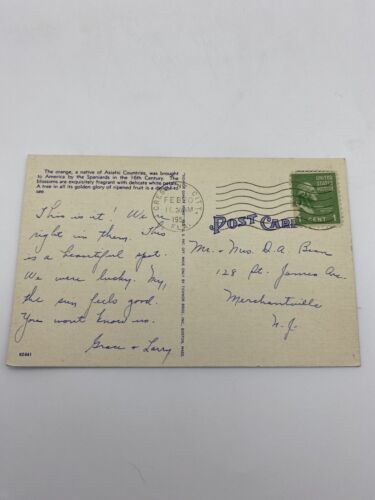 The orange, a native of Asiatic Countries, was brought
to America by the Spaniards in the 16th Century. The
blossoms are exquisitely fragrant with delicate white petals.
A tree in all its golden glory of ripened fruit is a delight to
see.
This is it! We're
right in them. This
is a beautiful spot.
We were lucky. My,
the sun feels good.
You won't know us.
Grace & Larry
K0441
FEB 20
FLA.
POST CARD
UNITED
STATES
POSTAGE
1 CENT 1
Mr. & Mrs. D.A. Bean
128 St. James Ave.
Merchantville
N.J.